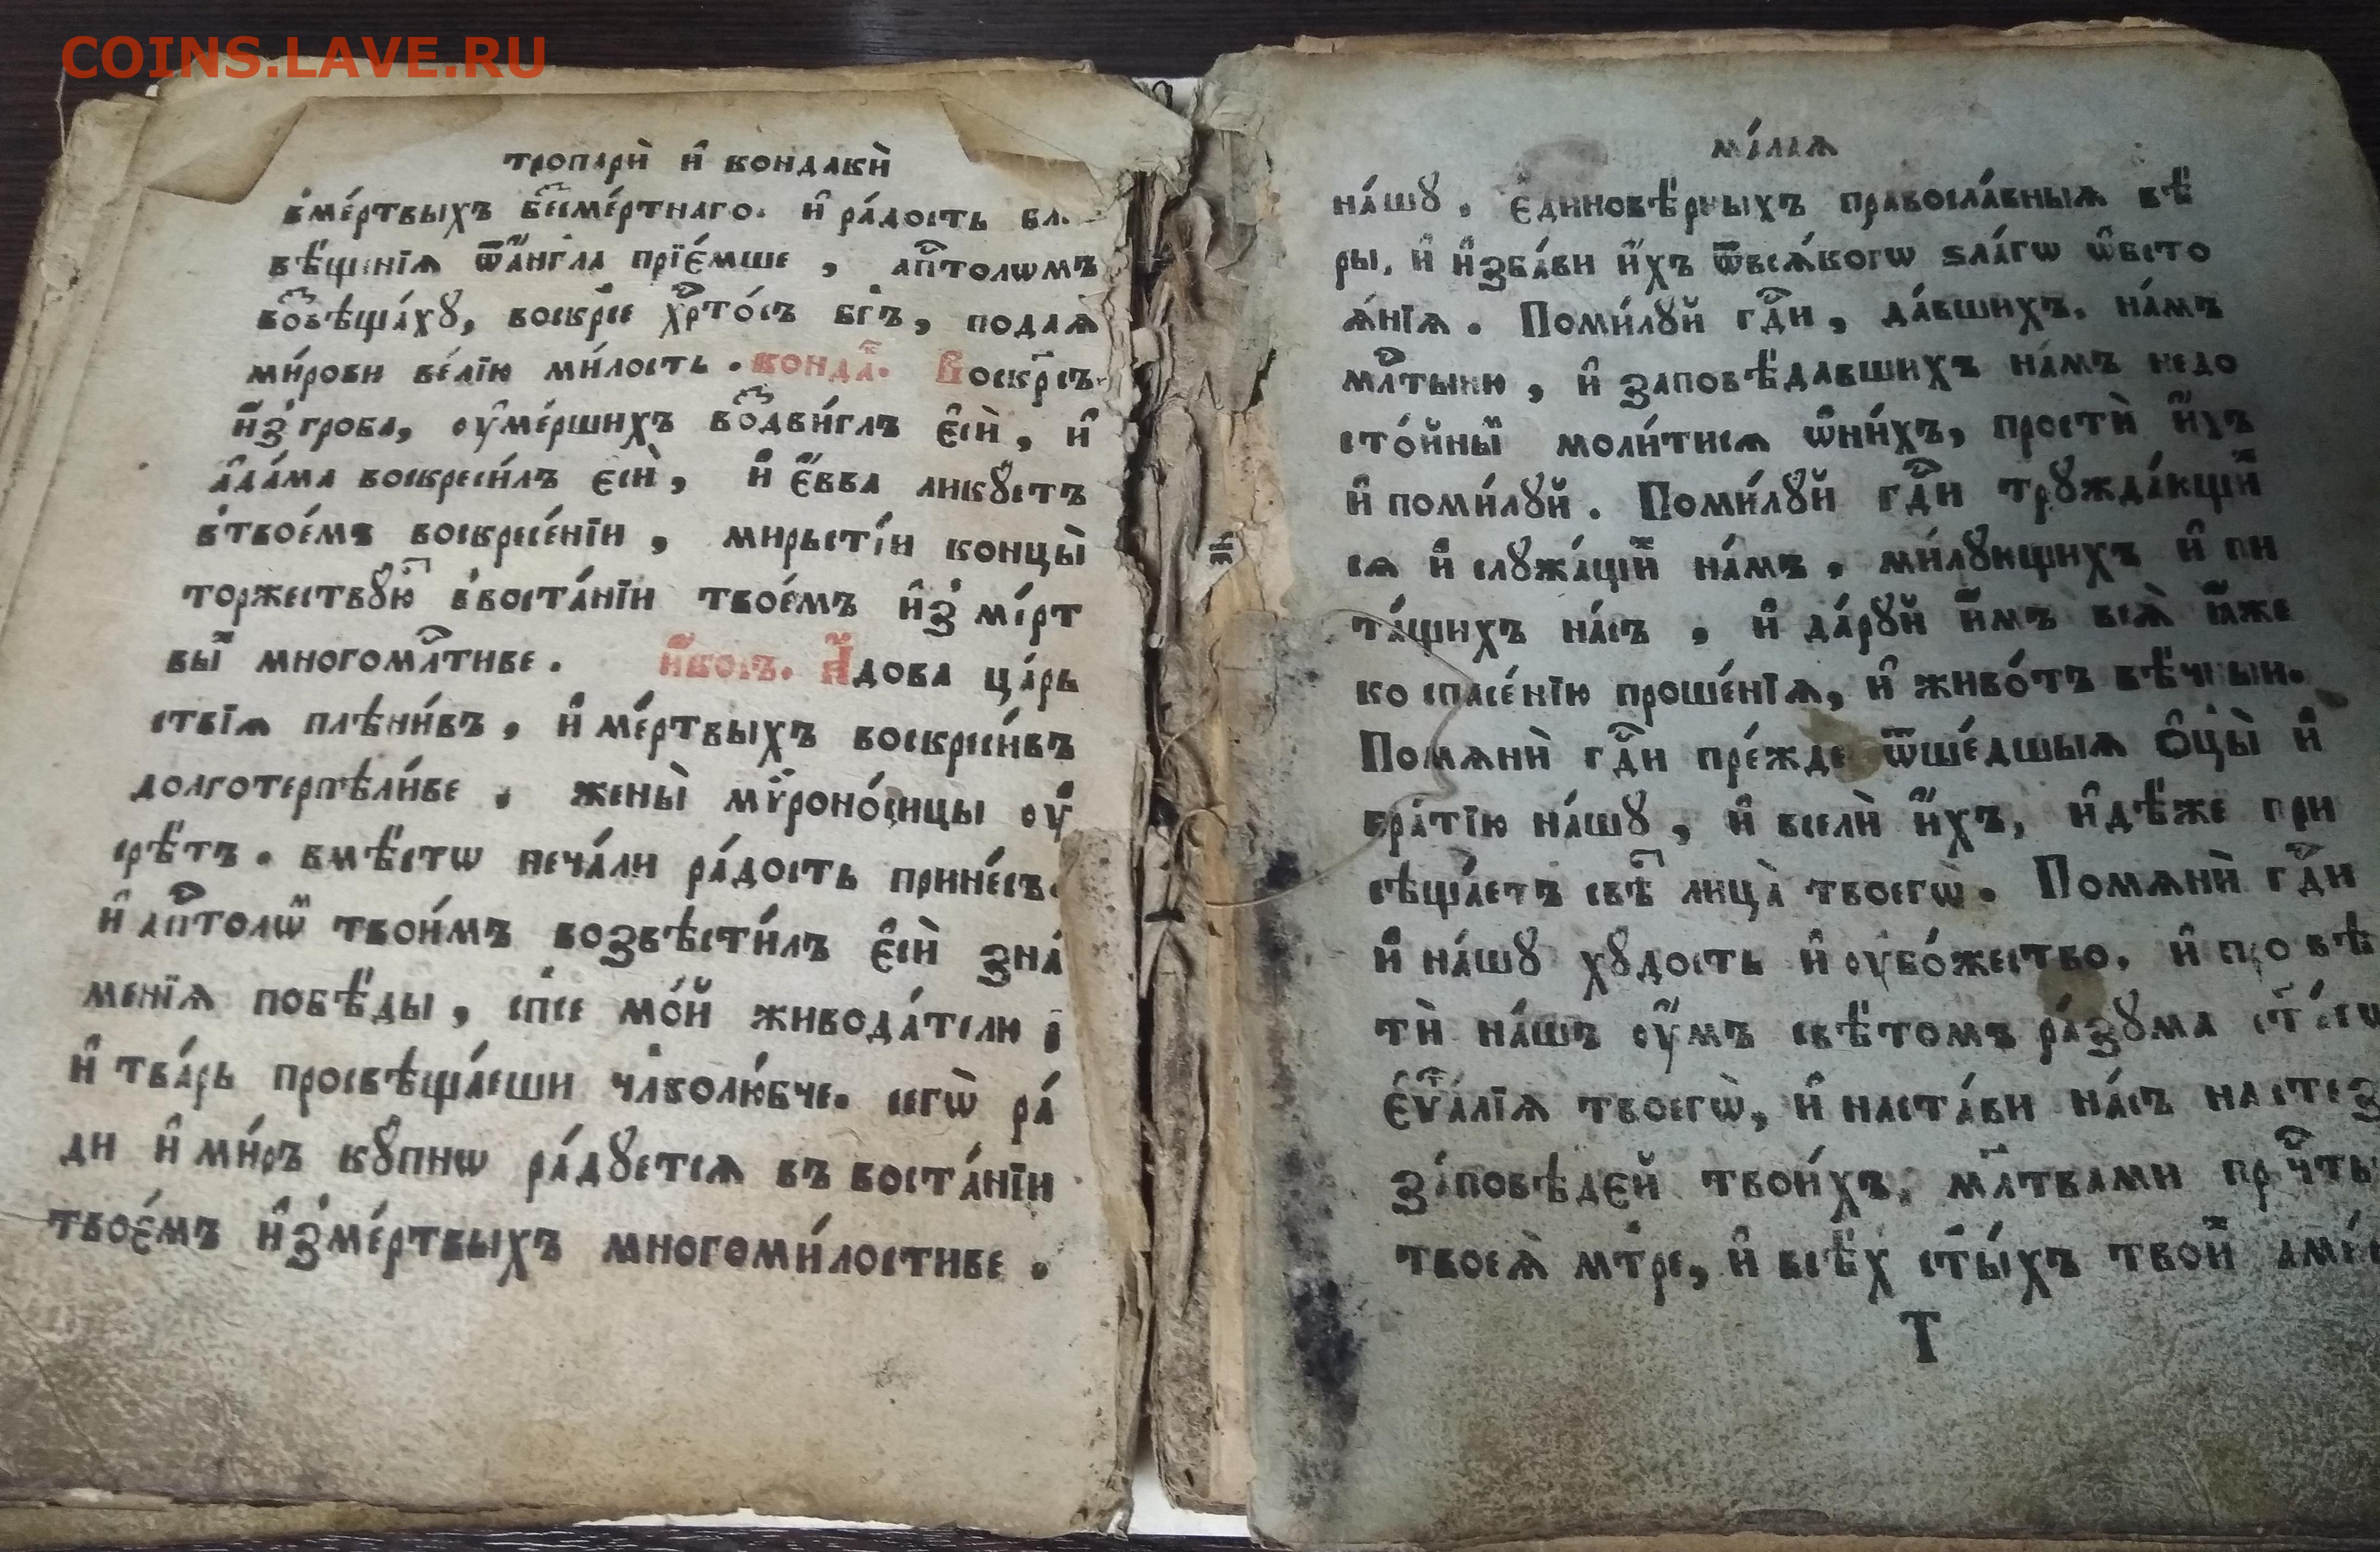 COINS.LAVE.RU
тропарѝ и҆ кондакѝ
в̾ме́ртвыхъ бе҇сме́ртнаго. и҆ ра́дость бл
вѣ́щенїѧ ѿа҆́нг҃ла прїе́мше , ап҇толѡмъ
во҇вѣща́хꙋ, воскр҃се хр҇то́съ бг҃ъ, подаѧ
ми́рови ве́лїю ми́лость . конда҇. Воскр҃съ
и҆з̾ гроба, оу҆ме́ршихъ во҇дви́глъ є҆сѝ, и҆
а҆да́ма воскреси́лъ є҆сѝ, и҆ є҆́вва ликꙋетъ
в̾твое́мъ воскресе́нїи , мирьсті́и концы̀
торжествꙋю҇ в̾воста́нїи твое́мъ и҆з̾ ме́рт
вы҇ многомл҇тиве . и҆́косъ. А҆́дова ца́рь
ствїѧ плѣни́въ, и҆ ме́ртвыхъ воскреси́въ
долготерпѣли́ве . жены̀ мѷроно́сицы оу҆
срѣ́тъ. вмѣстѡ печа́ли ра́дость прине́съ.
и҆ ап҇толѡ҇ твои́мъ возвѣсти́лъ є҆сѝ зна́
менїѧ побѣ́ды, сп҃се мо́й живода́телю
и҆ тва́рь просвѣща́еши чл҃колю́бче. сегѡ̀ ра́
ди и҆ ми́ръ кꙋпнѡ ра́дꙋетсѧ въ воста́нїи
твое́мъ и҆з̾ме́ртвыхъ многоми́лостиве .
ма́лаѧ
на́шꙋ . є҆диновѣ́рныхъ правосла́вныѧ вѣ́
ры, и҆ и҆зба́ви и҆́хъ ѿвсѧ́когѡ ѕла́гѡ ѡ҆бсто
ѧ́нїѧ . Поми́лꙋй гд҇и , да́вшихъ на́мъ
мл҇тыню , и҆ заповѣ́давшихъ на́мъ недо
сто́йны҇ моли́тисѧ ѡ҆ни́хъ, простѝ и҆́хъ
и҆ поми́лꙋй . Поми́лꙋй гд҇и трꙋжда́ющи҇
сѧ и҆ слꙋжа́щи҇ на́мъ . ми́лꙋющихъ и҆ пи
та́щихъ на́съ , и҆ да́рꙋй и҆́мъ всѧ̀ ꙗ҆́же
ко спасе́нїю проше́нїѧ, и҆ живо́тъ вѣ́чныи.
Помѧнѝ гд҇и пре́жде ѿше́дшыѧ ѻ҆цы̀ и҆
бра́тїю на́шꙋ , и҆ вселѝ и҆́хъ, и҆дѣ́же при
сѣща́етъ свѣ҇ лица̀ твоегѡ̀. Помѧнѝ гд҇и
и҆ на́шꙋ хꙋдость и҆ оу҆бо́жество. и҆ про вѣ
тѝ на́шъ оу҆́мъ свѣ́томъ ра́зꙋма ст҃а́гѡ
є҆ѵ҇а́лїѧ твоегѡ̀, и҆ наста́ви на́съ на стез
за́повѣдей твои́хъ, мл҃твами пр҇чты
твоеѧ̀ мт҃ре, и҆ всѣ́х ст҃ы́хъ твои҇
Т